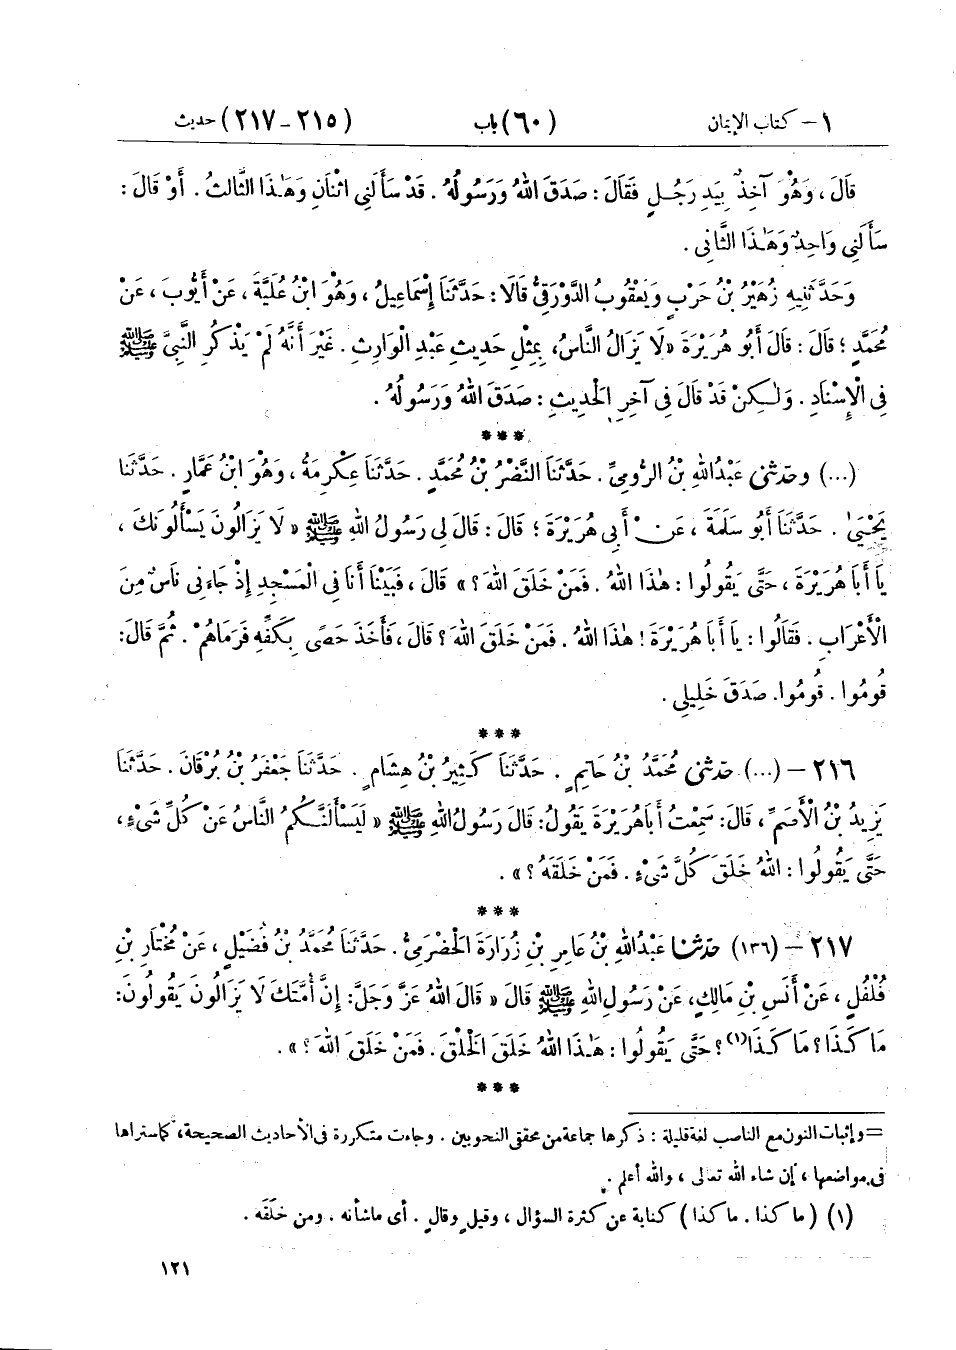 ١ – كتاب الإيمان (٦٠) باب (٢١٥ – ٢١٧) حديث
قَالَ ، وَهُوَ آخِذٌ بِيَدِ رَجُلٍ فَقَالَ : صَدَقَ اللهُ وَرَسُولُهُ . قَدْ سَأَلَنِي اثْنَانِ وَهَٰذَا الثَّالِثُ . أَوْ قَالَ :
سَأَلَنِي وَاحِدٌ وَهَٰذَا الثَّانِي .
وَحَدَّثَنِيهِ زُهَيْرُ بْنُ حَرْبٍ وَيَعْقُوبُ الدَّوْرَقِيُّ قَالَا : حَدَّثَنَا إِسْمَاعِيلُ ، وَهُوَ ابْنُ عُلَيَّةَ ، عَنْ أَيُّوبَ ، عَنْ
مُحَمَّدٍ ؛ قَالَ : قَالَ أَبُو هُرَيْرَةَ «لَا يَزَالُ النَّاسُ» بِمِثْلِ حَدِيثِ عَبْدِ الْوَارِثِ . غَيْرَ أَنَّهُ لَمْ يَذْكُرِ النَّبِيَّ ﷺ
فِي الْإِسْنَادِ . وَلَٰكِنْ قَدْ قَالَ فِي آخِرِ الْحَدِيثِ : صَدَقَ اللهُ وَرَسُولُهُ .
***
(...) وحدثني عَبْدُ اللهِ بْنُ الرُّومِيِّ . حَدَّثَنَا النَّضْرُ بْنُ مُحَمَّدٍ . حَدَّثَنَا عِكْرِمَةُ ، وَهُوَ ابْنُ عَمَّارٍ . حَدَّثَنَا
يَحْيَىٰ . حَدَّثَنَا أَبُو سَلَمَةَ ، عَنْ أَبِي هُرَيْرَةَ ؛ قَالَ : قَالَ لِي رَسُولُ اللهِ ﷺ « لَا يَزَالُونَ يَسْأَلُونَكَ ،
يَا أَبَا هُرَيْرَةَ ، حَتَّى يَقُولُوا : هَٰذَا اللهُ . فَمَنْ خَلَقَ اللهَ ؟ » قَالَ ، فَبَيْنَا أَنَا فِي الْمَسْجِدِ إِذْ جَاءَنِي نَاسٌ مِنَ
الْأَعْرَابِ . فَقَالُوا : يَا أَبَا هُرَيْرَةَ ! هَٰذَا اللهُ . فَمَنْ خَلَقَ اللهَ ؟ قَالَ ، فَأَخَذَ حَصًى بِكَفِّهِ فَرَمَاهُمْ . ثُمَّ قَالَ :
قُومُوا . قُومُوا. صَدَقَ خَلِيلِي .
***
٢١٦ – (...) حدثني مُحَمَّدُ بْنُ حَاتِمٍ . حَدَّثَنَا كَثِيرُ بْنُ هِشَامٍ . حَدَّثَنَا جَعْفَرُ بْنُ بُرْقَانَ . حَدَّثَنَا
يَزِيدُ بْنُ الْأَصَمِّ ، قَالَ : سَمِعْتُ أَبَا هُرَيْرَةَ يَقُولُ : قَالَ رَسُولُ اللهِ ﷺ « لَيَسْأَلَنَّكُمُ النَّاسُ عَنْ كُلِّ شَيْءٍ ،
حَتَّى يَقُولُوا : اللهُ خَلَقَ كُلَّ شَيْءٍ . فَمَنْ خَلَقَهُ ؟ » .
***
٢١٧ – (١٣٦) حدثنا عَبْدُ اللهِ بْنُ عَامِرِ بْنِ زُرَارَةَ الْحَضْرَمِيُّ . حَدَّثَنَا مُحَمَّدُ بْنُ فُضَيْلٍ ، عَنْ مُخْتَارِ بْنِ
فُلْفُلٍ ، عَنْ أَنَسِ بْنِ مَالِكٍ، عَنْ رَسُولِ اللهِ ﷺ قَالَ « قَالَ اللهُ عَزَّ وَجَلَّ : إِنَّ أُمَّتَكَ لَا يَزَالُونَ يَقُولُونَ :
مَا كَذَا ؟ مَا كَذَا (١) ؟ حَتَّى يَقُولُوا : هَٰذَا اللهُ خَلَقَ الْخَلْقَ . فَمَنْ خَلَقَ اللهَ ؟ » .
***
= وإثبات النون مع الناصب لغة قليلة : ذكرها جماعة من محققي النحويين . وجاءت متكررة في الأحاديث الصحيحة ، كما ستراها
في مواضعها ، إن شاء الله تعالى ، والله أعلم .
(١) ( ما كذا . ما كذا ) كناية عن كثرة السؤال ، وقيل وقال . أي ما شأنه . ومن خلقه .
١٢١